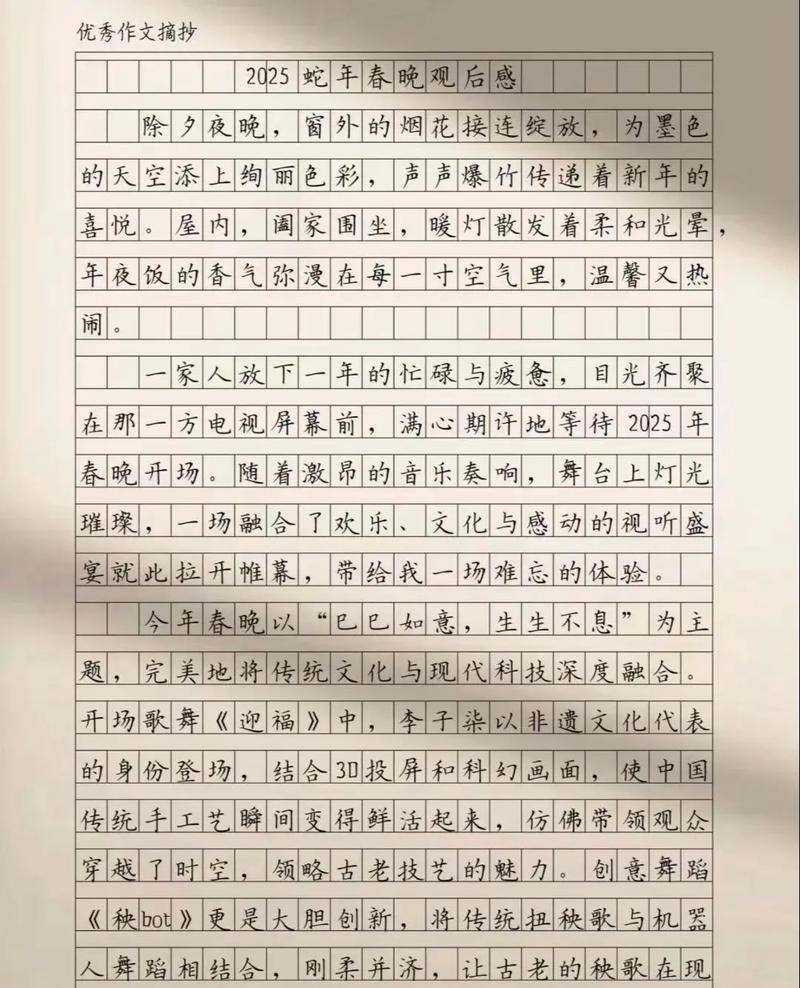 优秀作文摘抄
2025 蛇年春晚观后感
除夕夜晚，窗外的烟花接连绽放，为墨色
的天空添上绚丽色彩，声声爆竹传递着新年的
喜悦。屋内，阖家围坐，暖灯散发着柔和光晕，
年夜饭的香气弥漫在每一寸空气里，温馨又热
闹。
一家人放下一年的忙碌与疲惫，目光齐聚
在那一方电视屏幕前，满心期许地等待 2025 年
春晚开场。随着激昂的音乐奏响，舞台上灯光
璀璨，一场融合了欢乐、文化与感动的视听盛
宴就此拉开帷幕，带给我一场难忘的体验。
今年春晚以“巳巳如意，生生不息”为主
题，完美地将传统文化与现代科技深度融合。
开场歌舞《迎福》中，李子柒以非遗文化代表
的身份登场，结合3D投屏和科幻画面，使中国
传统手工艺瞬间变得鲜活起来，仿佛带领观众
穿越了时空，领略古老技艺的魅力。创意舞蹈
《秧bot》更是大胆创新，将传统扭秧歌与机器
人舞蹈相结合，刚柔并济，让古老的秧歌在现